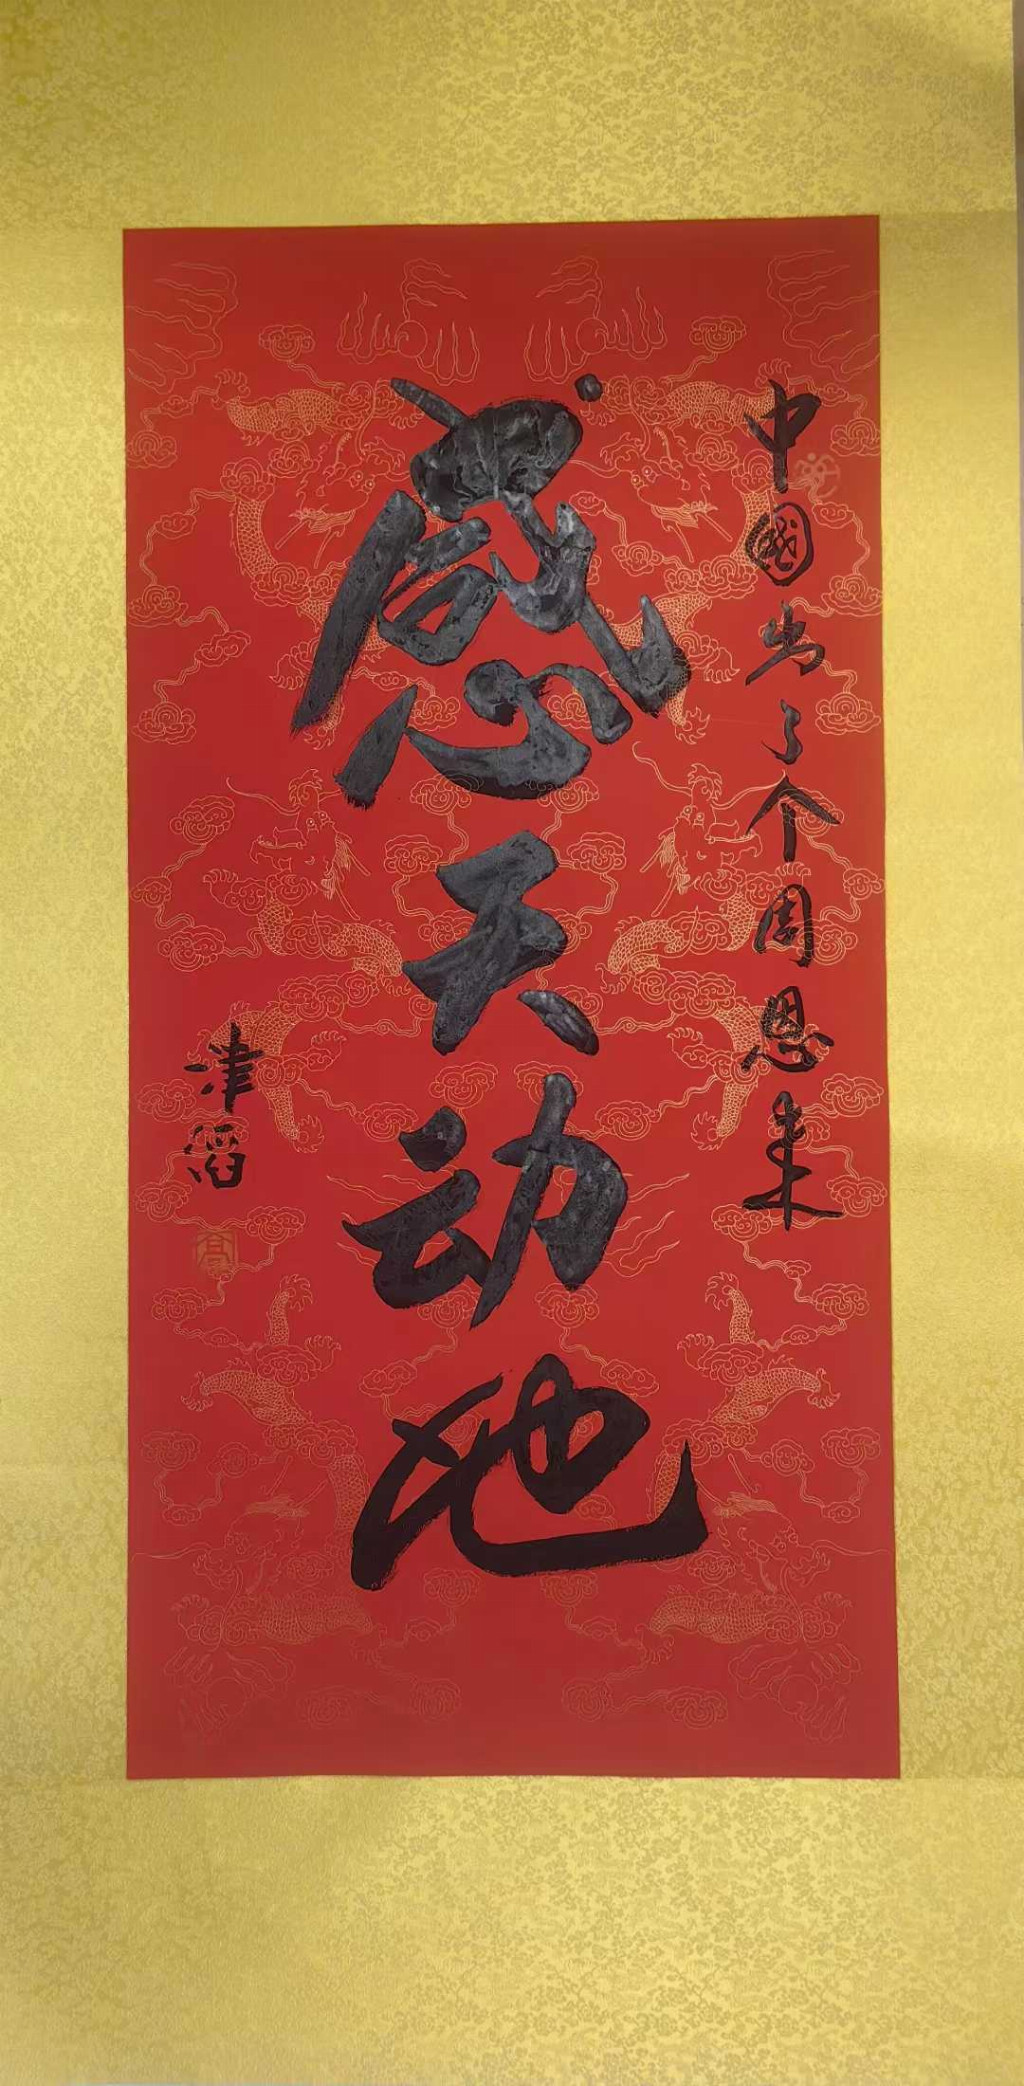 中國出了个周恩来
感天动地
津滔
高